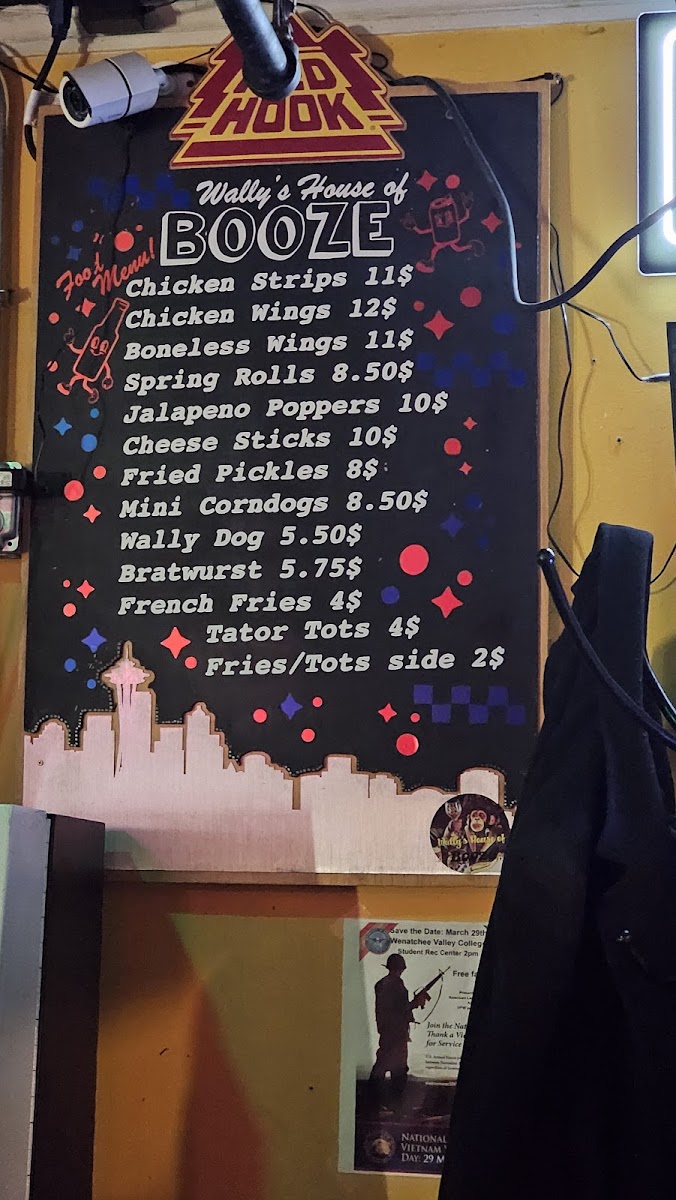 RED
HOOK
Wally's House of
BOOZE
Food
Menu!
Chicken Strips 11$
Chicken Wings 12$
Boneless Wings 11$
Spring Rolls 8.50$
Jalapeno Poppers 10$
Cheese Sticks 10$
Fried Pickles 8$
Mini Corndogs 8.50$
Wally Dog 5.50$
Bratwurst 5.75$
French Fries 4$
Tator Tots 4$
Fries/Tots side 2$
Wally's House of
Save the Date: March 29th
Wenatchee Valley College
Student Rec Center 2pm
Free
Join the
Thank a
for Service
NATIONAL
VIETNAM
DAY: 29